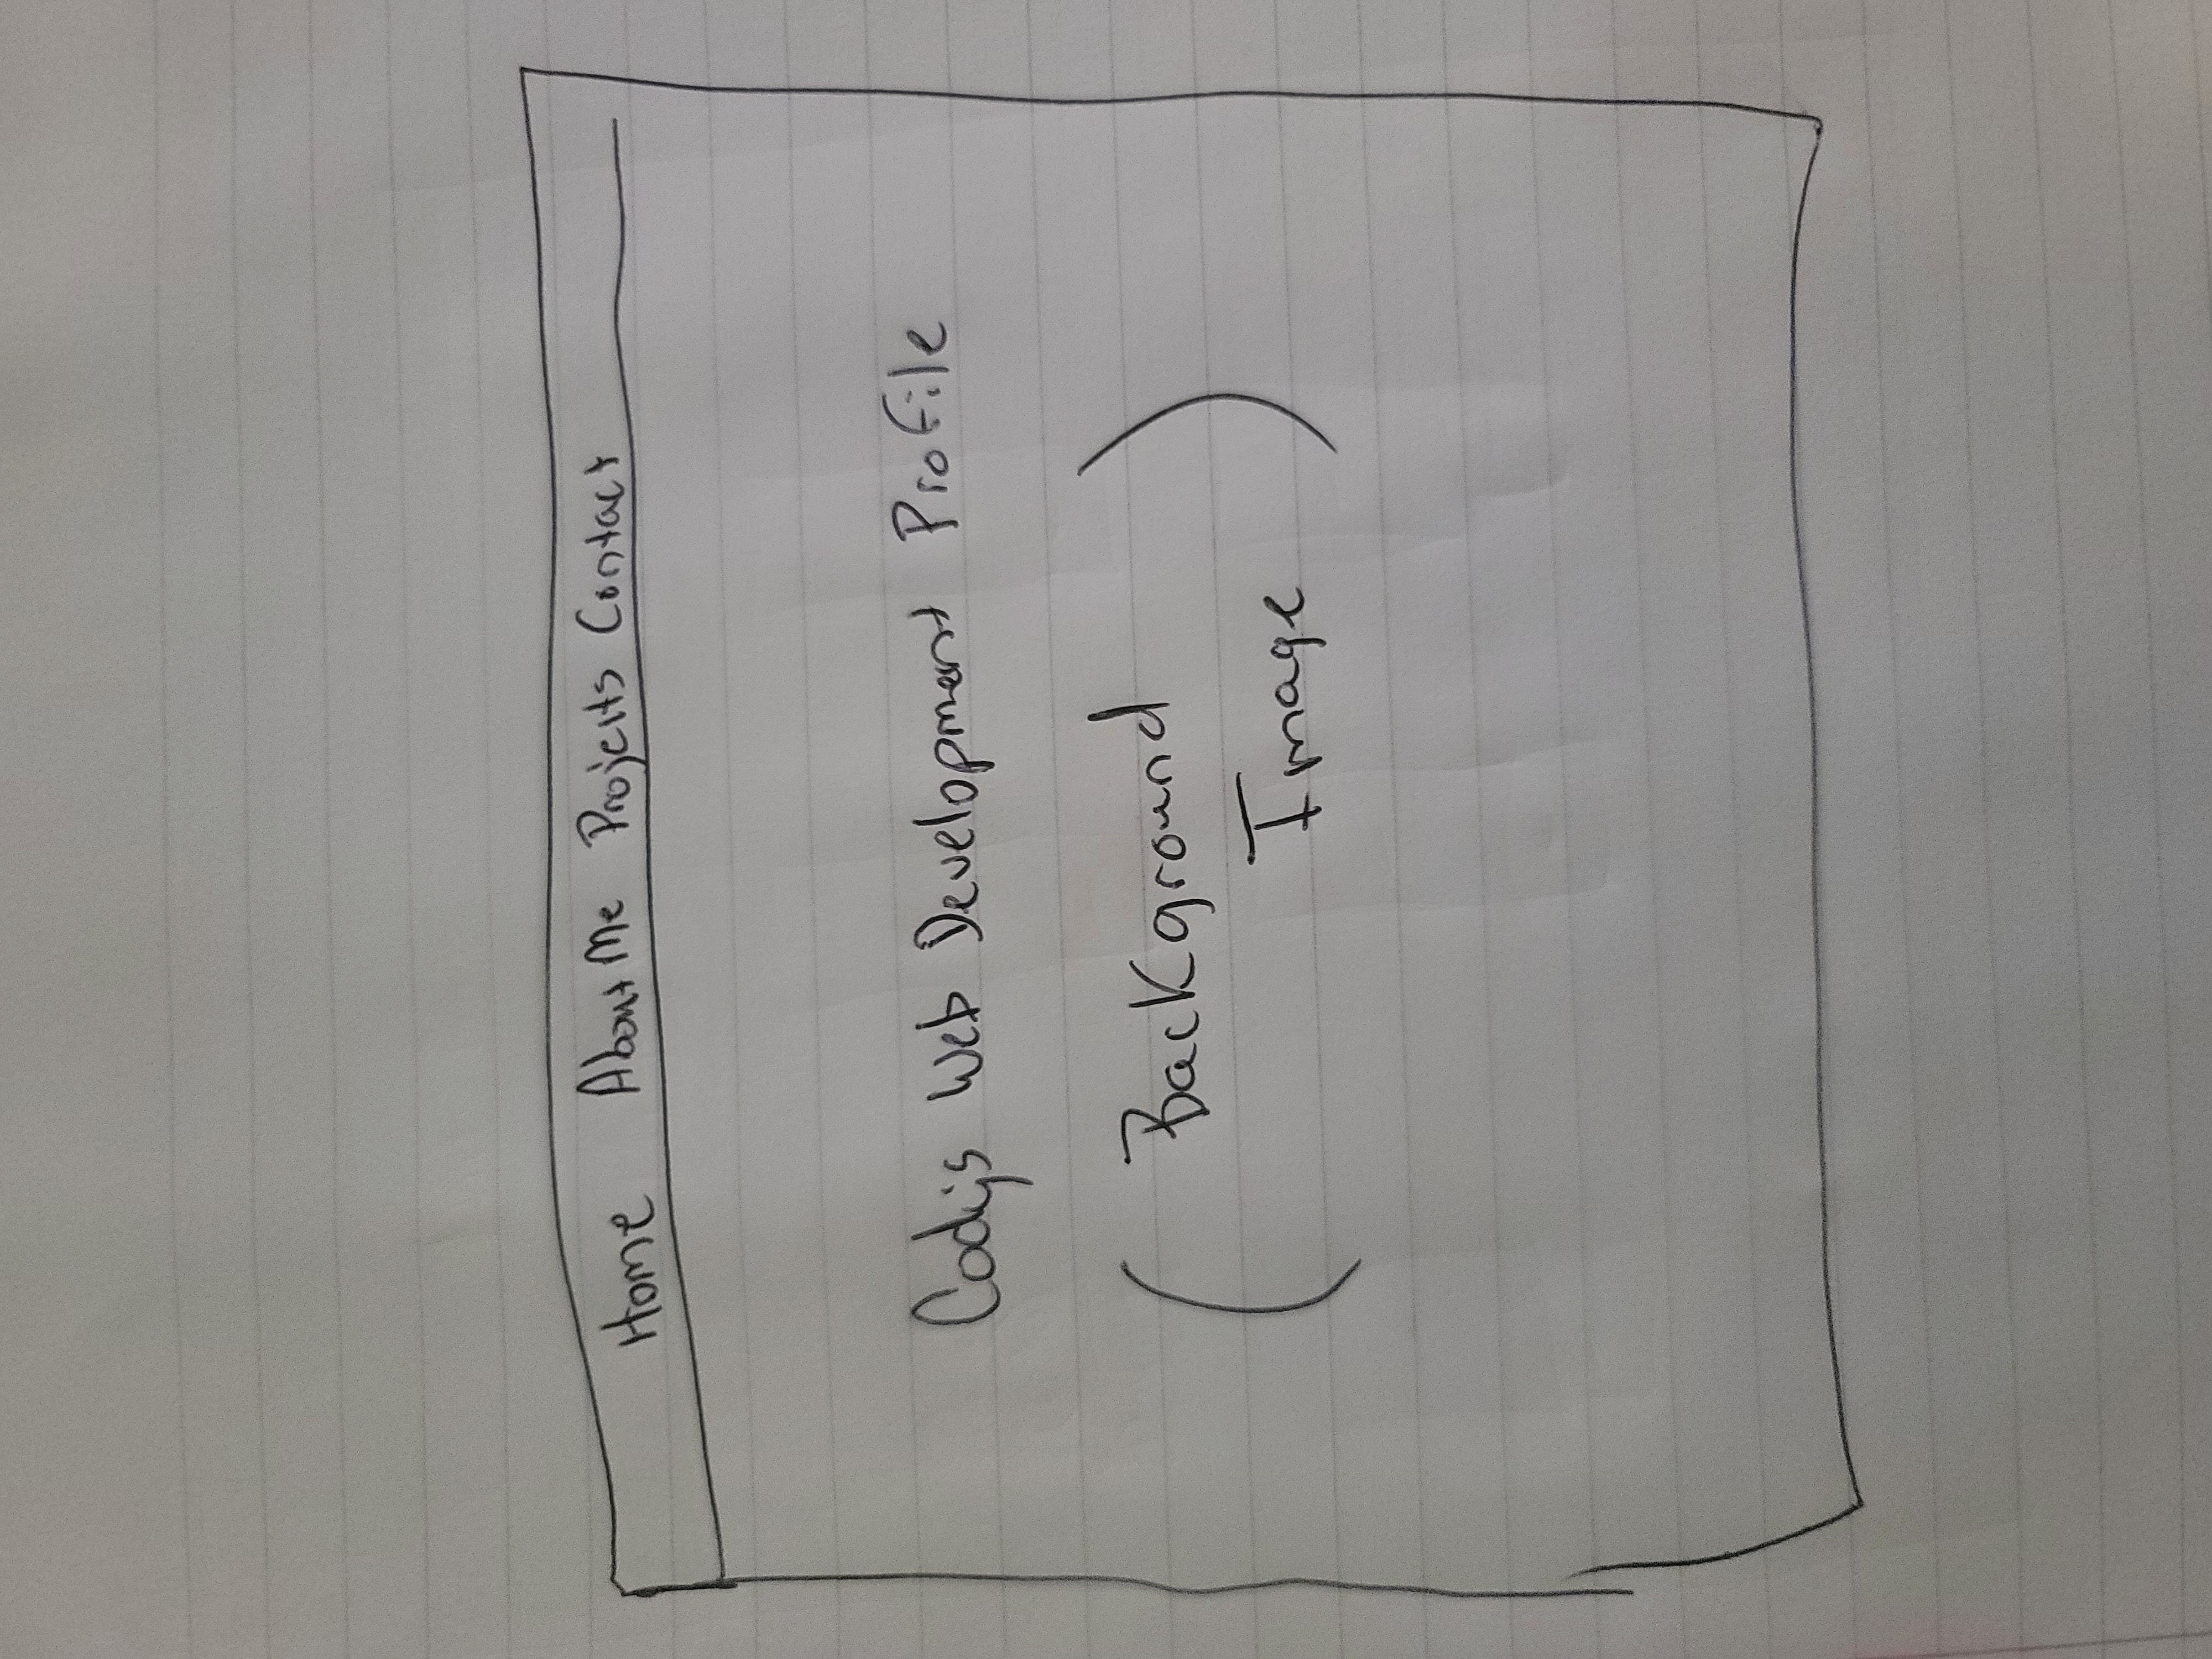 Home About Me Projects Contact
Cody's Web Development Profile
( Background
Image )